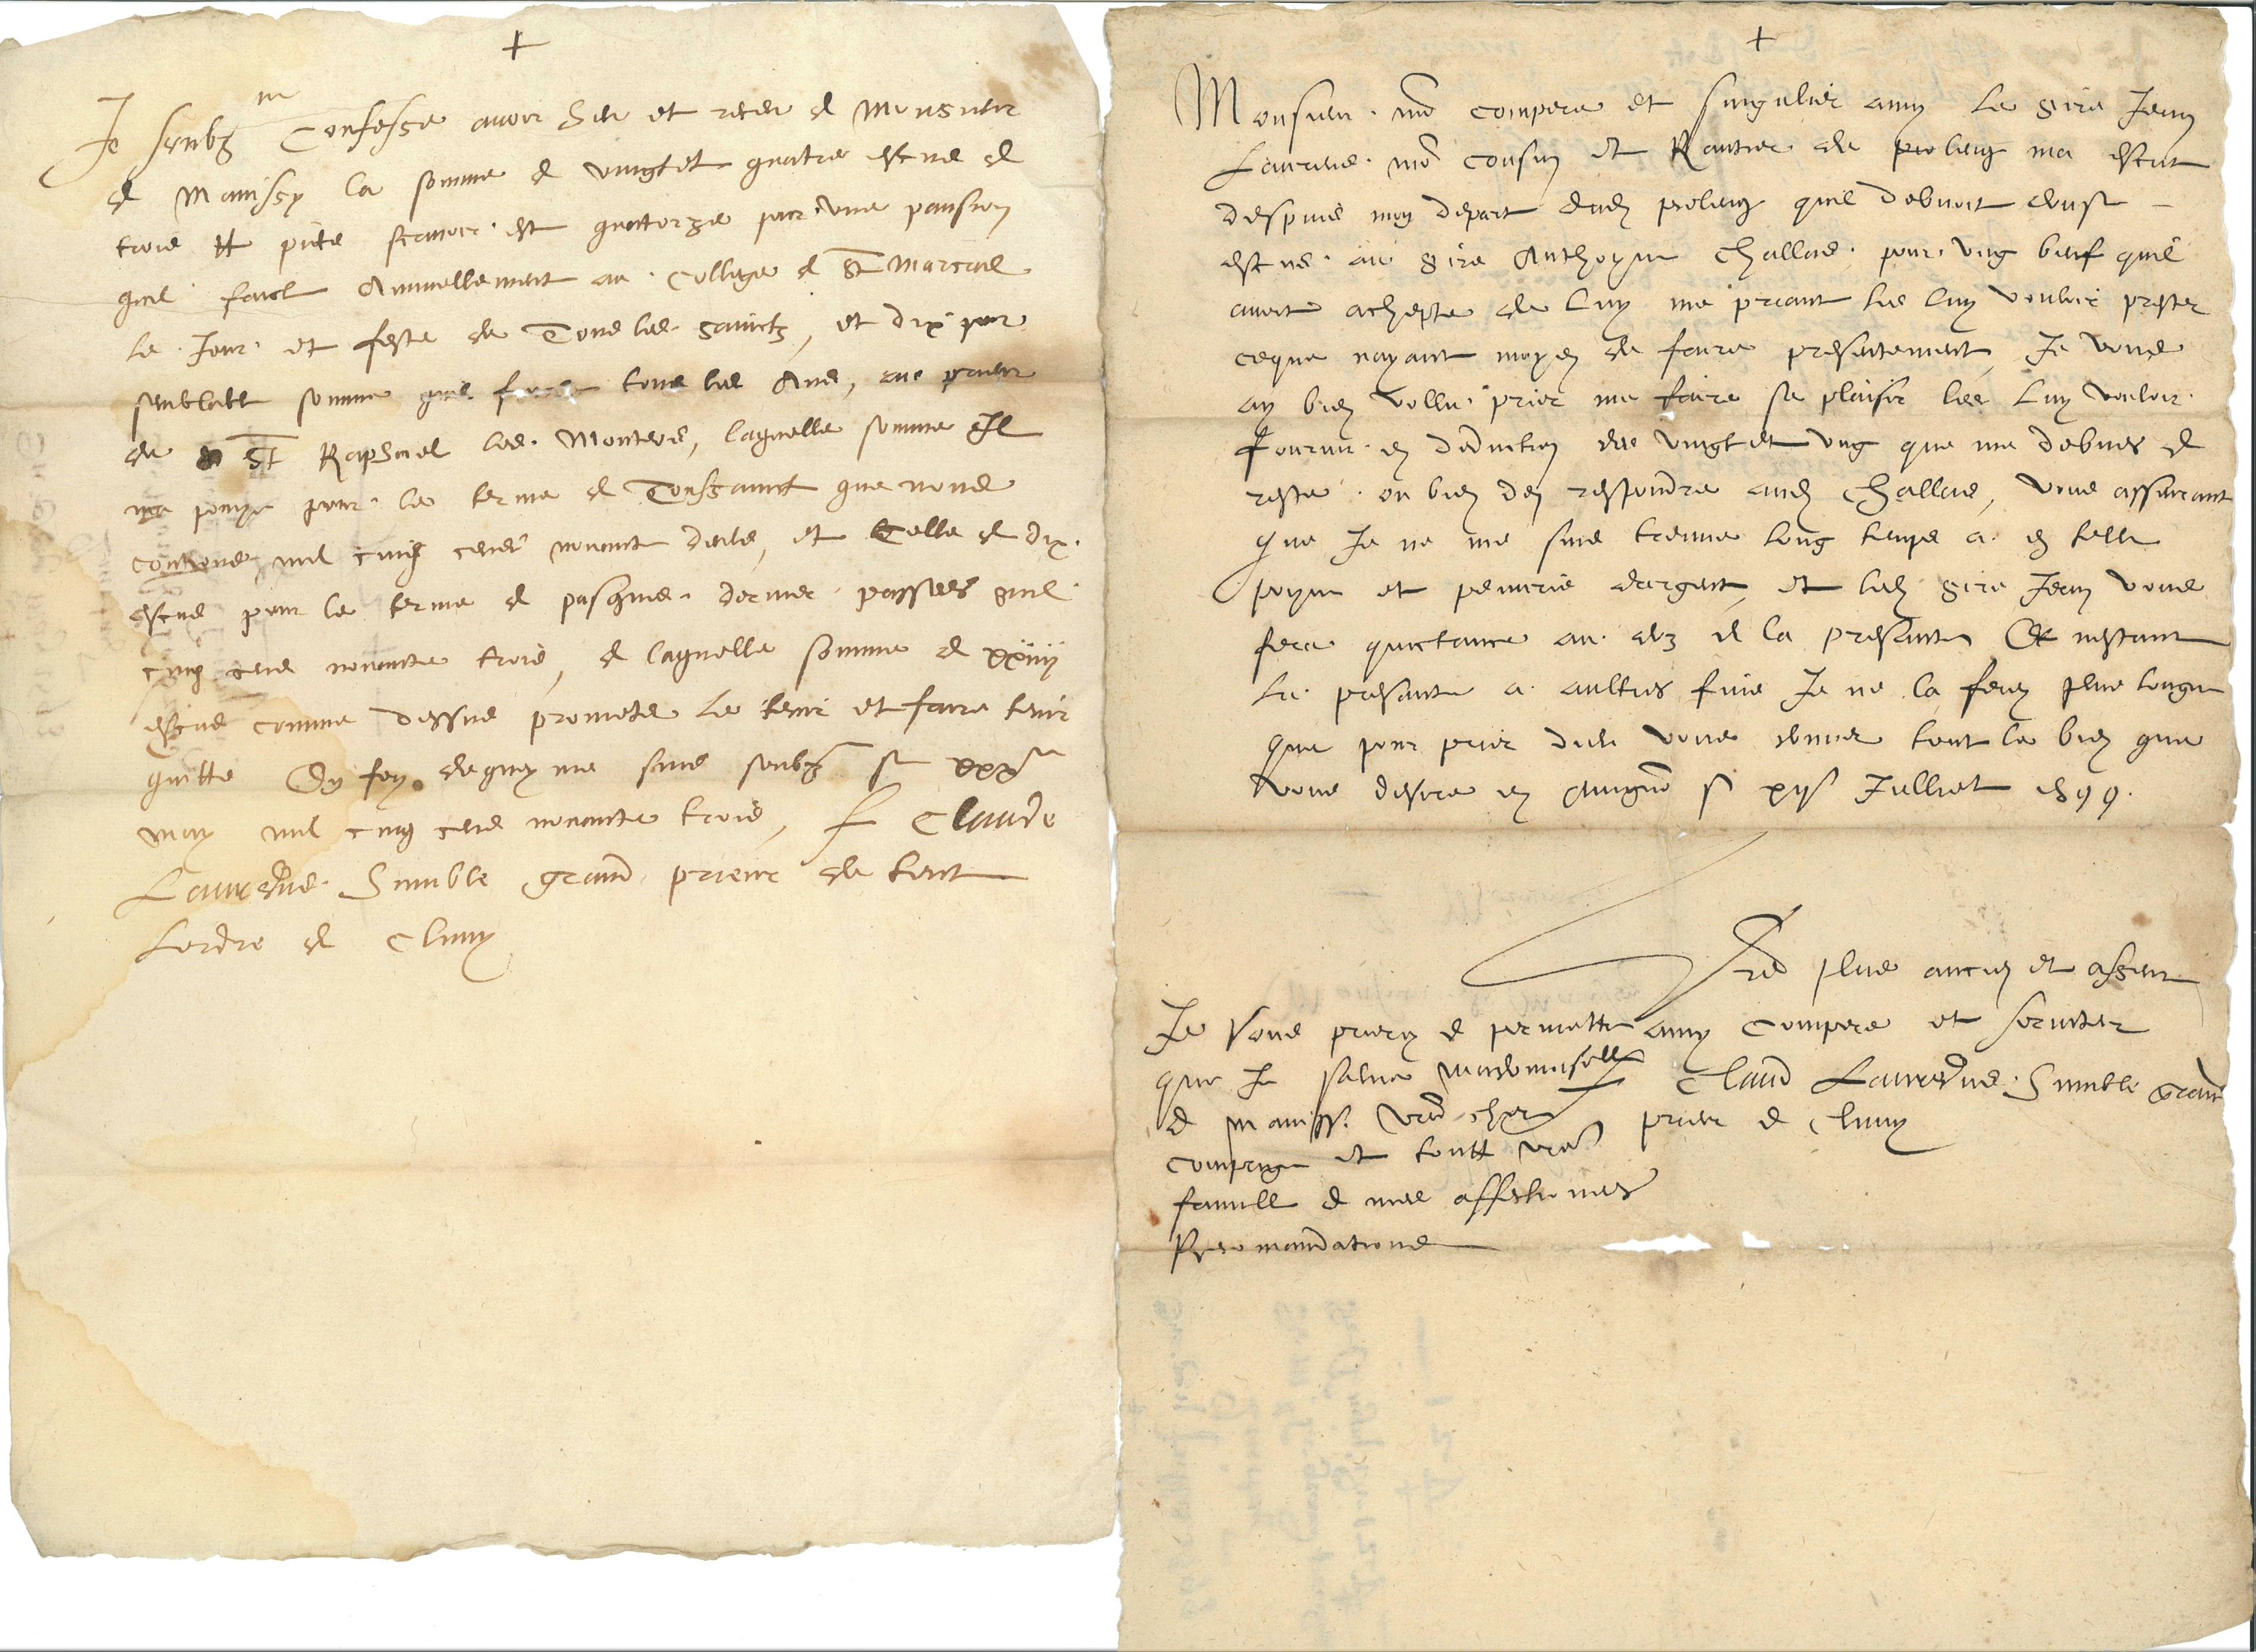 +
Je soubz.ne Confesse avoir heu et receu de Monsieur
de Manissy la somme de vingtet quatre escus de
trois ₶ piece scavoir est quattorze pour une pansion
quil faict Annuellement au College de St Marcial
le Jour et feste de Tous les sainctz, et dix pour
semblable somme quil faict tous les Ans, au prieur
de St Raphael les Monteols, laquelle somme Il
ma payee pour le terme de Toussainct que nous
contions mil cinq cens nonant deulx, et Celle de dix
escus pour le terme de pasques dernier passees quil
cinq cens nonante trois, de laquelle somme de xxiiij
escus comme dessus prometz le tenir et faire tenir
quitte En foy dequoy me suis soubz.ne ce xxxme
may mil cinq cens nonante trois, f Claude
Laurens humble grand prieur de tout
Lordre de Cluny
+
Monsieur mon compere et singulier amy le sire Jean
Laurens mon cousin et Rantier de ma escrit
despuis mon depart dud quil debvoit
escus au sire Anthoyne Challas pour ung beuf quil
avoit achepte de luy me priant les luy vouloir prester
ceque nayant moyen de faire presentement, Je vous
ay bien vollu prier me faire se plaisir les luy vouloir
fournir en deduction des vingtet ung que me debves de
reste ou bien den respondre aud Challas, vous asseurant
que Je ne me suis treuve long temps a en telle
poyne et penurie dargent, et led sire Jean vous
fera quictance au dos de la presante Et nestant
la presante a aultres fins Je ne la feray plus longue
que pour prier dieu vous donner tout le bien que
vous desire en Avignon ce xije Juliet 1599.
Vre plus ancien et asseure
amy compere et serviteur
Claud Laurens humble Grand
prieur de Cluny
Je vous prieray de permettre
que Je salue madamoiselle
de maniss. vre chere
compaigne et toutte vre
famille de mes affectionnes
Recomandations